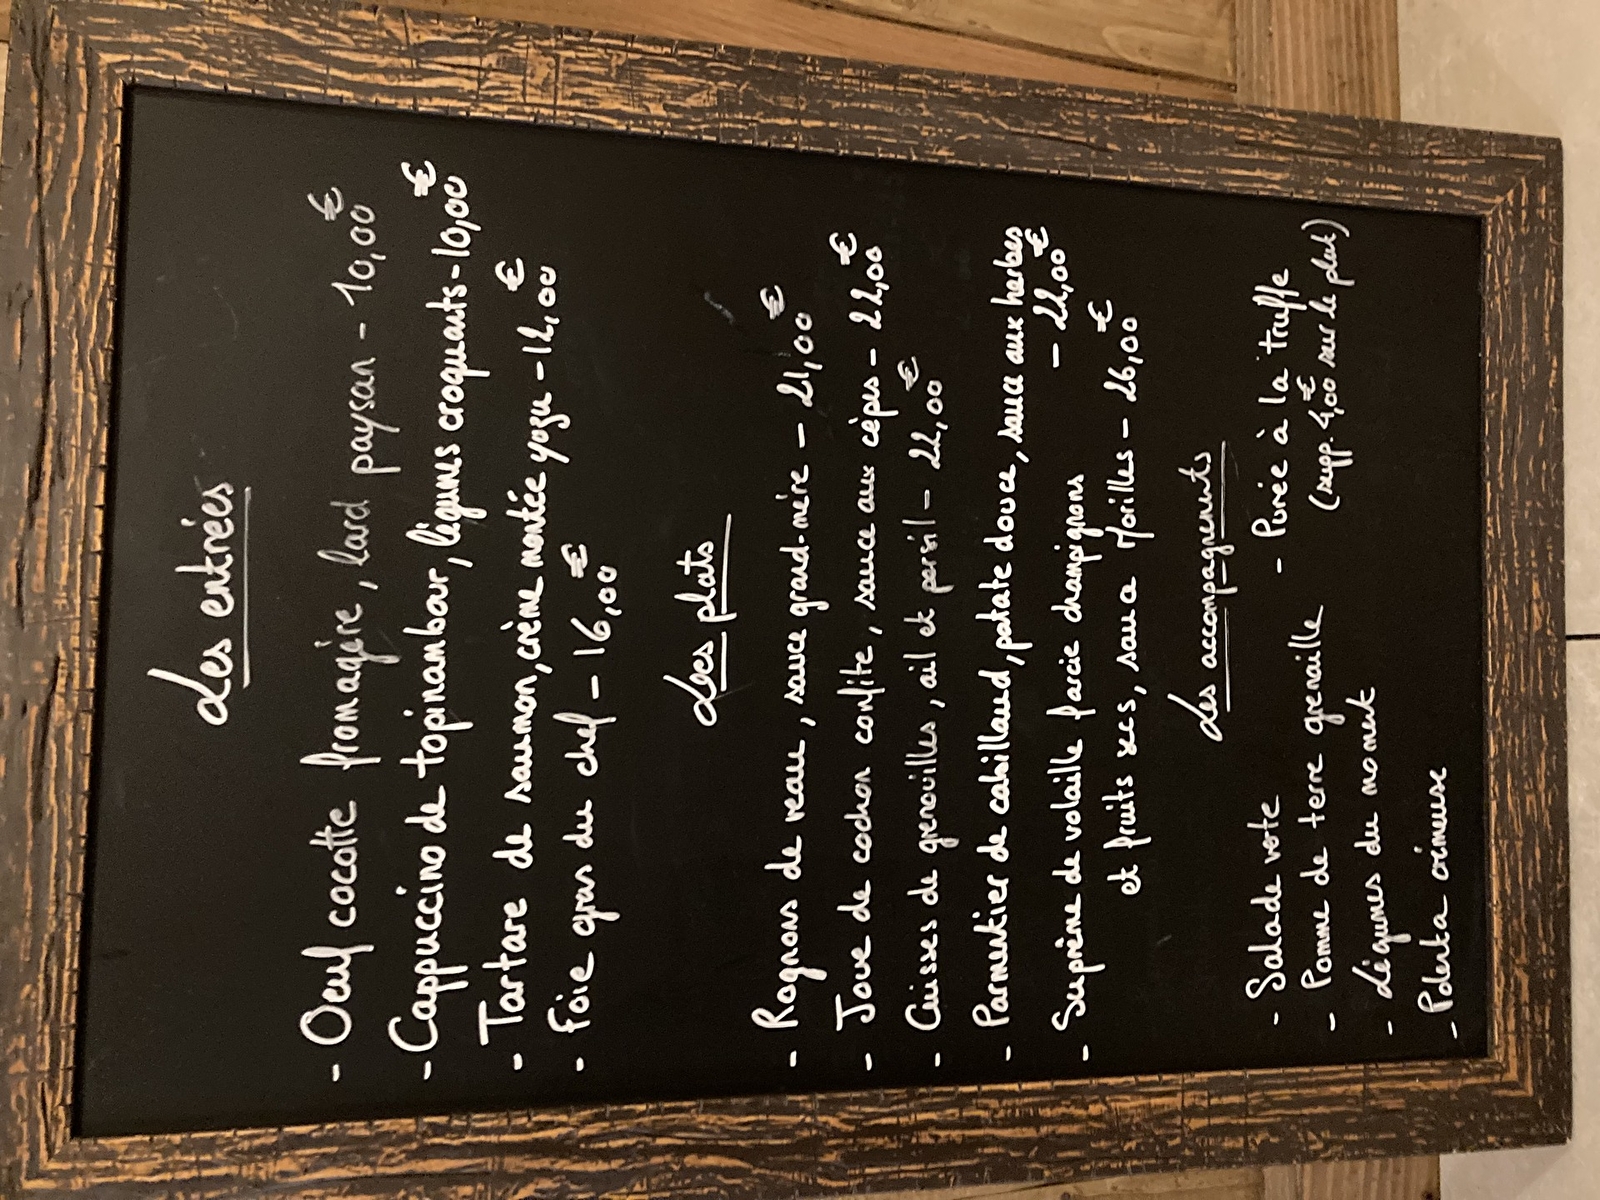 Les entrées
- Oeuf cocotte fromagère, lard paysan - 10,00€
- Cappuccino de topinambour, légumes croquants - 10,00€
- Tartare de saumon, crème montée yuzu - 12,00€
- Foie gras du chef - 16,00€
Les plats
- Rognons de veau, sauce grand-mère - 21,00€
- Joue de cochon confite, sauce aux cèpes - 22,00€
- Cuisses de grenouilles, ail et persil - 22,00€
- Parmentier de cabillaud, patate douce, sauce aux herbes
- 22,00€
- Suprème de volaille farcie champignons
et fruits secs, sauce Morilles - 26,00€
Les accompagnements
- Salade verte
- Pomme de terre grenaille
- Légumes du moment
- Polenta crémeuse
- Purée à la truffe
(supp. 4,00€ sur le plat)